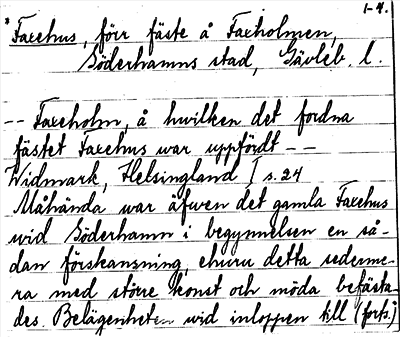 1-4.
Faxehus, förr fäste å Faxholmen,
Söderhamns stad, Gävleb. l.
-- Faxeholm, å hwilken det fordna
fästet Faxehus war uppfördt --
Widmark, Helsingland I s. 24
Måhända war äfwen det gamla Faxehus
wid Söderhamn i begynnelsen en så-
dan förskansning, ehuru detta sederme-
ra med större konst och möda befästa-
des. Belägenheten wid inloppen till (forts.)